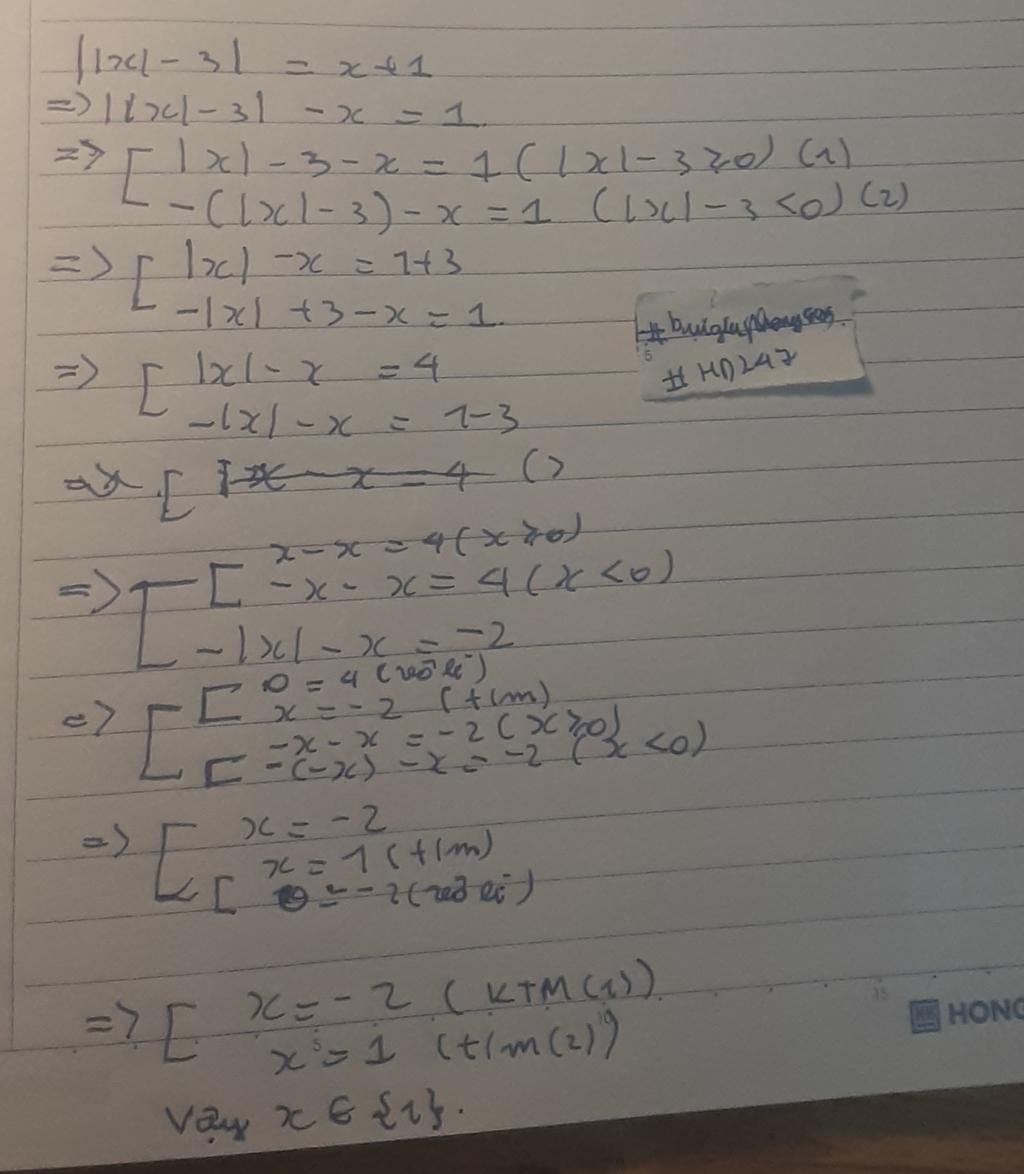 ||x| - 3| = x + 1
=> ||x| - 3| - x = 1
=> [ |x| - 3 - x = 1 ( |x| - 3 ≥ 0) (1)
-(|x| - 3) - x = 1 (|x| - 3 < 0) (2)
=> [ |x| - x = 1+3
-|x| + 3 - x = 1
=> [ |x| - x = 4
-|x| - x = 1-3
#HD247
=> [ x - x = 4 ( )
x - x = 4 (x ≥ 0)
=> [ [ -x - x = 4 (x < 0)
-|x| - x = -2
[ 0 = 4 (vô lí)
=> [ x = -2 (t/m)
-x - x = -2 (x ≥ 0)
[ -(-x) - x = -2 (x < 0)
=> [ x = -2
x = 1 (t/m)
[ 0 = -2 (vô lí)
=> [ x = -2 (KTM (1))
x = 1 (t/m (2))
Vậy x ∈ {1}.
HONG